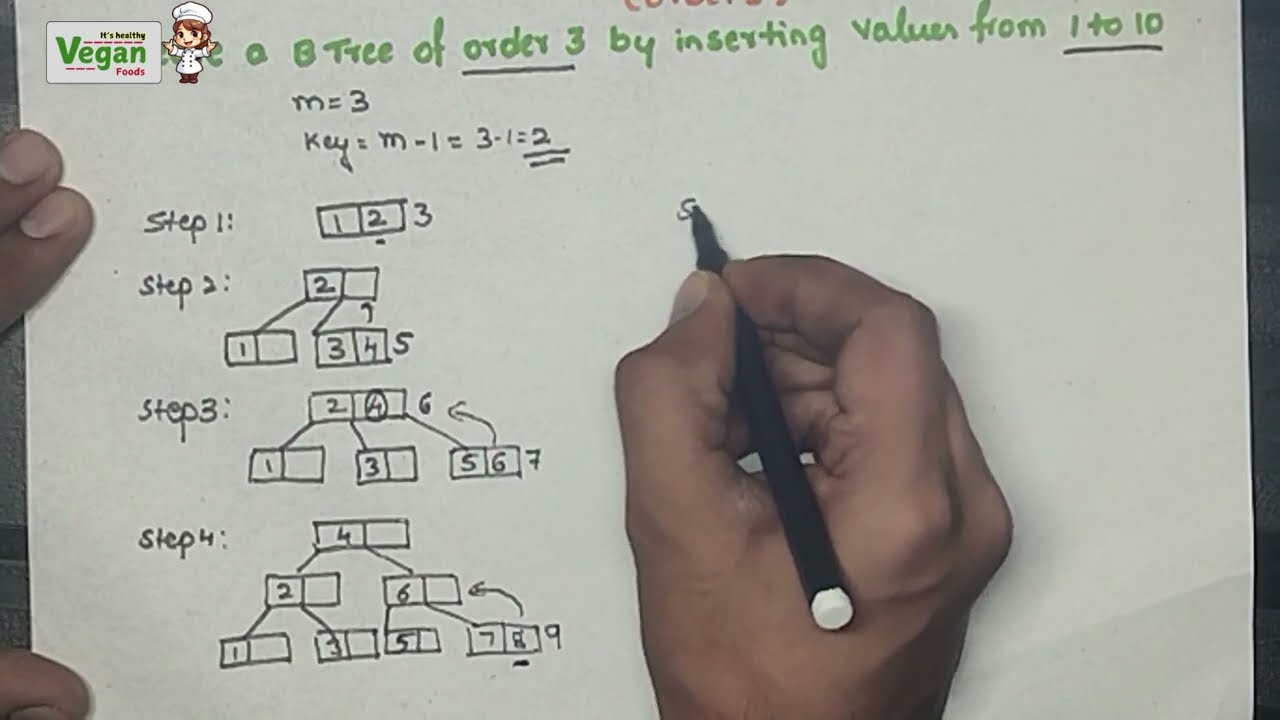 It's healthy
Vegan
Foods
a B Tree of order 3 by inserting values from 1 to 10
m = 3
Key = m - 1 = 3-1 = 2
Step 1: 1 2 3
Step 2: 2
1 3 4 5
Step3: 2 4 6
1 3 5 6 7
Step4: 4
2 6
1 3 5 7 8 9
S